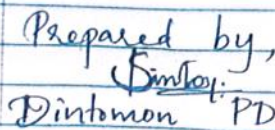 Prepared by,
Dintomon PD